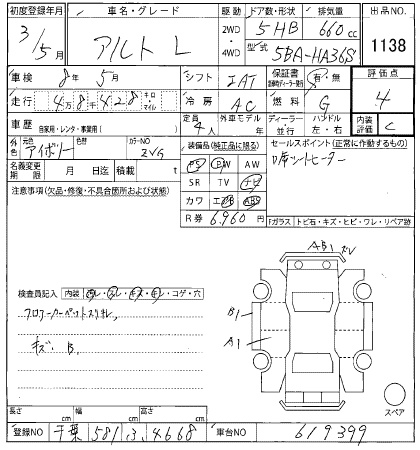 初度登録年月 車名・グレード 駆動 ドア数・形状 排気量 出品NO.
31/5月 アルト L 2WD・4WD 5HB 660cc 1138
型式 5BA-HA36S
車検 8年 5月 シフト IAT 保証書 有・無 評価点
走行 4万8千428 キロ マイル 冷房 AC 燃料 G 4
車歴 自家用・レンタ・事業用( ) 定員 4人 外車モデル ディーラー・並行 ハンドル 左・右 内装評価 C
外色 元色 アイボリー 色替 カラーNO ZVG 装備品(純正品に限る) セールスポイント(正常に作動するもの)
名義変更期限 月 日迄 積載 t PS PW AW
注意事項(欠品・修復・不具合箇所および状態) SR TV ナビ
カワ エアB ABS
R券 6,960円 Fガラス トビ石・キズ・ヒビ・ワレ・リペア跡
AB1
検査員記入 内装 ヨゴレ・スレ・キズ・キレ・コゲ・穴
B1
フロアーカーペットスリキレ
キズ B. A1
スペア
長さ cm 幅 cm 高さ cm
登録NO 千葉 581 ス 4668 車台NO 619399